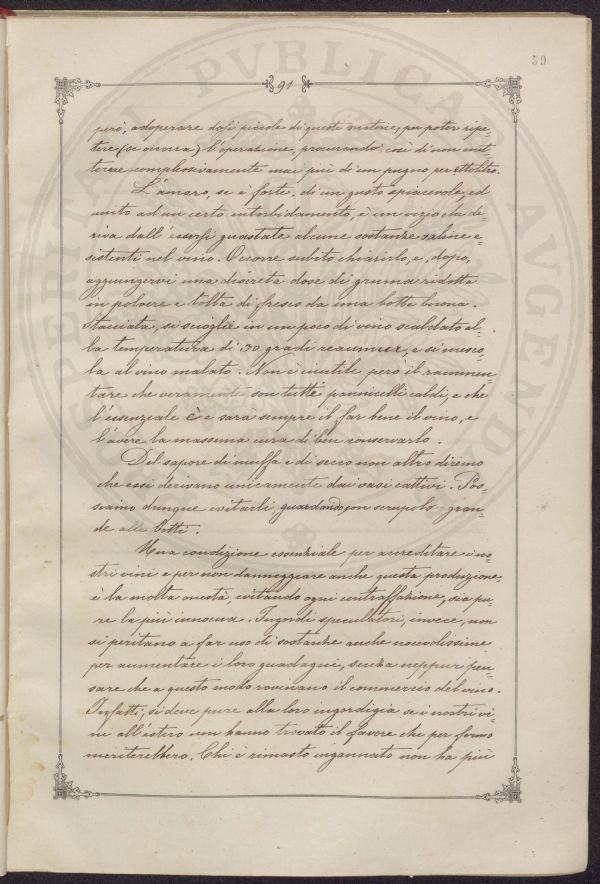 59
91
però, adoperare dosi piccole di queste materie, per poter ripe-
tere (se occorra) l'operazione, procurando così di non met-
terne complessivamente mai più di un pugno per ettolitro.
L'amaro, se è forte, di un gusto spiacevole, ed
unito ad un certo intorbidamento, è un vizio che de-
riva dall'essersi guastate alcune sostanze saline e-
sistenti nel vino. Occorre subito chiarirlo, e, dopo,
aggiungervi una discreta dose di gruma ridotta
in polvere e tolta di fresco da una botte buona.
Stacciata, si scioglie in un poco di vino scaldato al-
la temperatura di 30 gradi reaumur, e si mesco-
la al vino malato. Non è inutile però il rammen-
tare che veramente son tutte pannicelli caldi, e che
l'essenziale è e sarà sempre il far bene il vino, e
l'avere la massima cura di ben conservarlo.
Del sapore di muffa e di secco non altro diremo
che essi derivano unicamente dai vasi cattivi. Pos-
siamo dunque evitarli, guardando con scrupolo gran-
de alle botti.
Una condizione essenziale per accreditare i no-
stri vini e per non danneggiare anche questa produzione,
è la molta onestà, evitando ogni contraffazione, sia pu-
re la più innocua. Ingordi speculatori, invece, non
si peritano a far uso di sostanze anche nocevolissime
per aumentare i loro guadagni, senza neppur pen-
sare che a questo modo rovinano il commercio del vino.
Infatti, si deve pure alla loro ingordigia se i nostri vi-
ni all'estero non hanno trovato il favore che per fermo
meriterebbero. Chi è rimasto ingannato non ha più